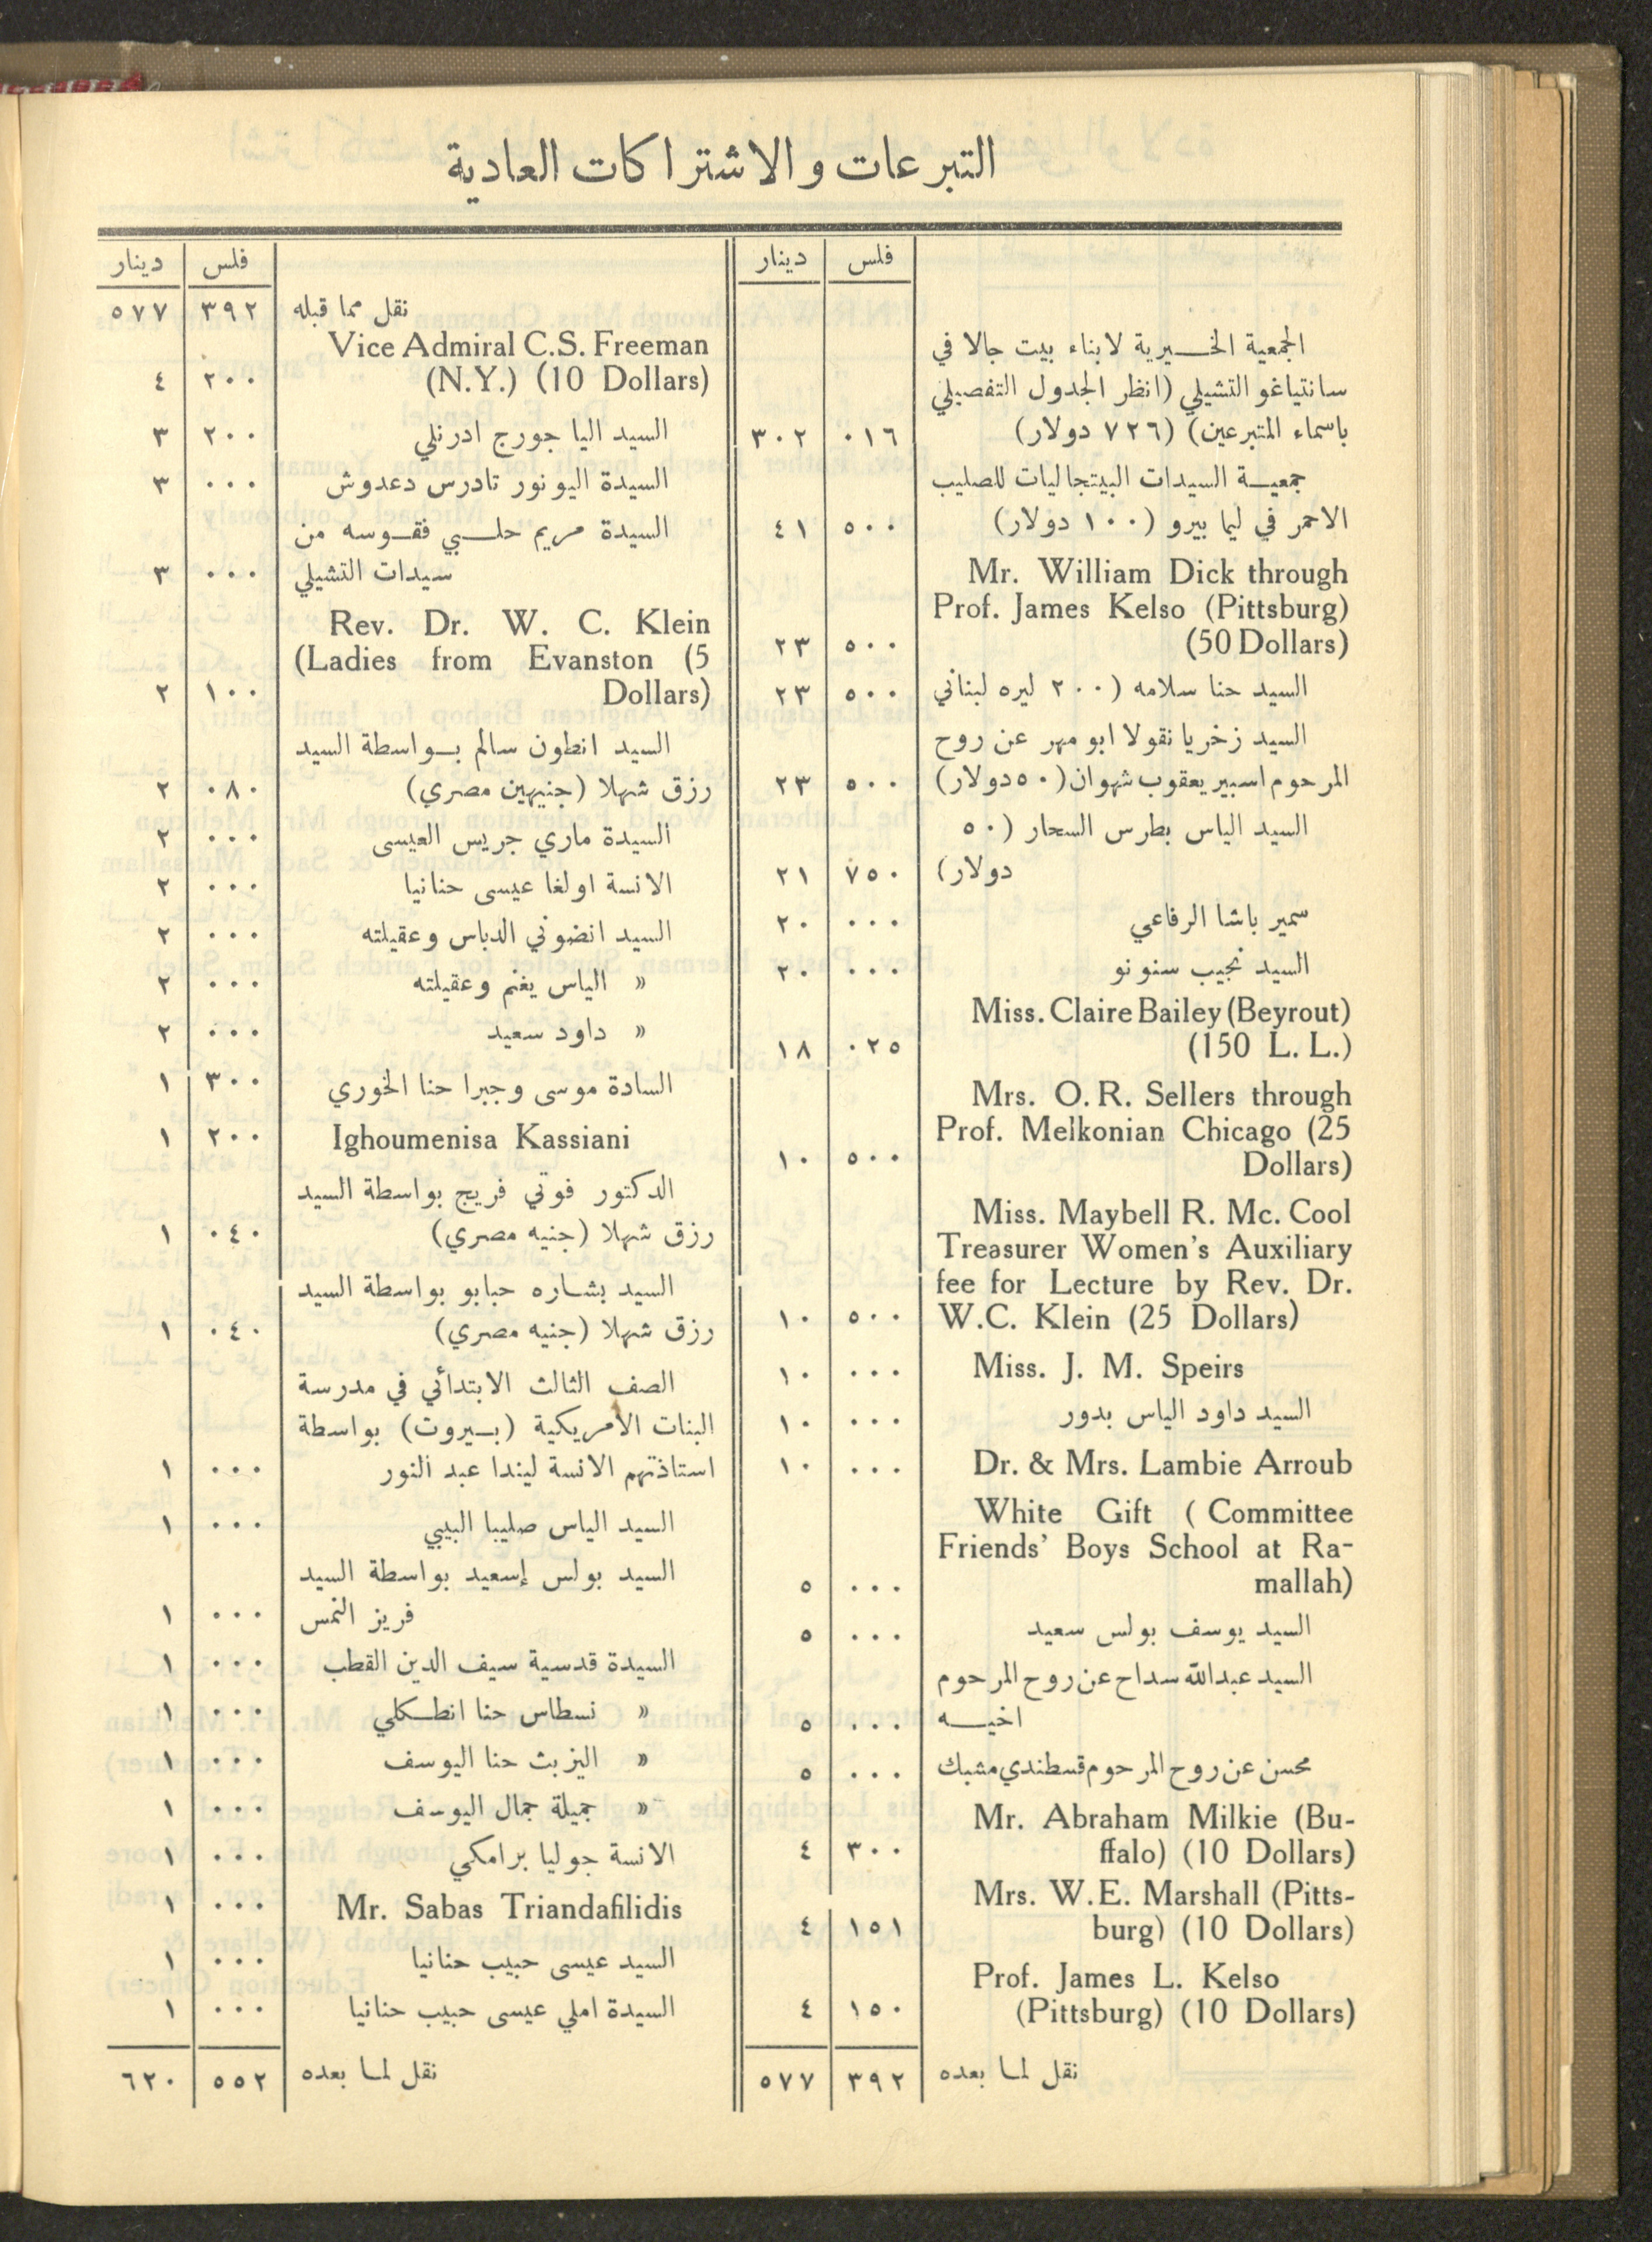 التبرعات والاشتراكات العادية
فلس دينار
الجمعية الخيرية لابناء بيت جالا في
سانتياغو التشيلي (انظر الجدول التفصيلي
باسماء المتبرعين) (٧٢٦ دولار) ٠١٦ ٣٠٢
جمعية السيدات البيتجاليات للصليب
الاحمر في ليما بيرو (١٠٠ دولار) ٥٠٠ ٤١
Mr. William Dick through
Prof. James Kelso (Pittsburg)
(50 Dollars) ٥٠٠ ٢٣
السيد حنا سلامه (٢٠٠ ليره لبناني ٥٠٠ ٢٣
السيد زخريا نقولا ابو مهر عن روح
المرحوم اسبير يعقوب شهوان (٥٠ دولار) ٥٠٠ ٢٣
السيد الياس بطرس السحار (٥٠
دولار) ٧٥٠ ٢١
سمير باشا الرفاعي ٠٠٠ ٢٠
السيد نجيب سنونو ٠٠٠ ٢٠
Miss. Claire Bailey (Beyrout)
(150 L. L.) ٠٢٥ ١٨
Mrs. O. R. Sellers through
Prof. Melkonian Chicago (25
Dollars) ٥٠٠ ١٠
Miss. Maybell R. Mc. Cool
Treasurer Women's Auxiliary
fee for Lecture by Rev. Dr.
W.C. Klein (25 Dollars) ٥٠٠ ١٠
Miss. J. M. Speirs ٠٠٠ ١٠
السيد داود الياس بدور ٠٠٠ ١٠
Dr. & Mrs. Lambie Arroub ٠٠٠ ١٠
White Gift ( Committee
Friends' Boys School at Ra-
mallah) ٠٠٠ ٥
السيد يوسف بولس سعيد ٠٠٠ ٥
السيد عبدالله سداح عن روح المرحوم
اخيه ٠٠٠ ٥
محسن عن روح المرحوم قسطندي مشبك ٠٠٠ ٥
Mr. Abraham Milkie (Bu-
ffalo) (10 Dollars) ٣٠٠ ٤
Mrs. W.E. Marshall (Pitts-
burg) (10 Dollars) ١٥١ ٤
Prof. James L. Kelso
(Pittsburg) (10 Dollars) ١٥٠ ٤
نقل لما بعده ٣٩٢ ٥٧٧
فلس دينار
نقل مما قبله ٣٩٢ ٥٧٧
Vice Admiral C.S. Freeman
(N.Y.) (10 Dollars) ٢٠٠ ٤
السيد اليا جورج ادرنلي ٢٠٠ ٣
السيدة اليونور تادرس دعدوش ٠٠٠ ٣
السيدة مريم حلبي فقوسه من
سيدات التشيلي ٠٠٠ ٣
Rev. Dr. W. C. Klein
(Ladies from Evanston (5
Dollars) ١٠٠ ٢
السيد انطون سالم بواسطة السيد
رزق شهلا (جنيهين مصري) ٠٨٠ ٢
السيدة ماري جريس العيسى ٠٠٠ ٢
الانسة اولغا عيسى حنانيا ٠٠٠ ٢
السيد انضوني الدباس وعقيلته ٠٠٠ ٢
« الياس يغنم وعقيلته ٠٠٠ ٢
« داود سعيد ٠٠٠ ٢
السادة موسى وجبرا حنا الخوري ٣٠٠ ١
Ighoumenisa Kassiani ٢٠٠ ١
الدكتور فوتي فريج بواسطة السيد
رزق شهلا (جنيه مصري) ٠٤٠ ١
السيد بشاره حبابو بواسطة السيد
رزق شهلا (جنيه مصري) ٠٤٠ ١
الصف الثالث الابتدائي في مدرسة
البنات الأمريكية (بيروت) بواسطة
استاذتهم الانسة ليندا عبد النور ٠٠٠ ١
السيد الياس صليبا البيبي ٠٠٠ ١
السيد بولس إسعيد بواسطة السيد
فريز النمس ٠٠٠ ١
السيدة قدسية سيف الدين القطب ٠٠٠ ١
« نسطاس حنا انطكلي ٠٠٠ ١
« اليزبث حنا اليوسف ٠٠٠ ١
« جميلة جمال اليوسف ٠٠٠ ١
الانسة جوليا برامكي ٠٠٠ ١
Mr. Sabas Triandafilidis ٠٠٠ ١
السيد عيسى حبيب حنانيا ٠٠٠ ١
السيدة املي عيسى حبيب حنانيا ٠٠٠ ١
نقل لما بعده ٥٥٢ ٦٢٠